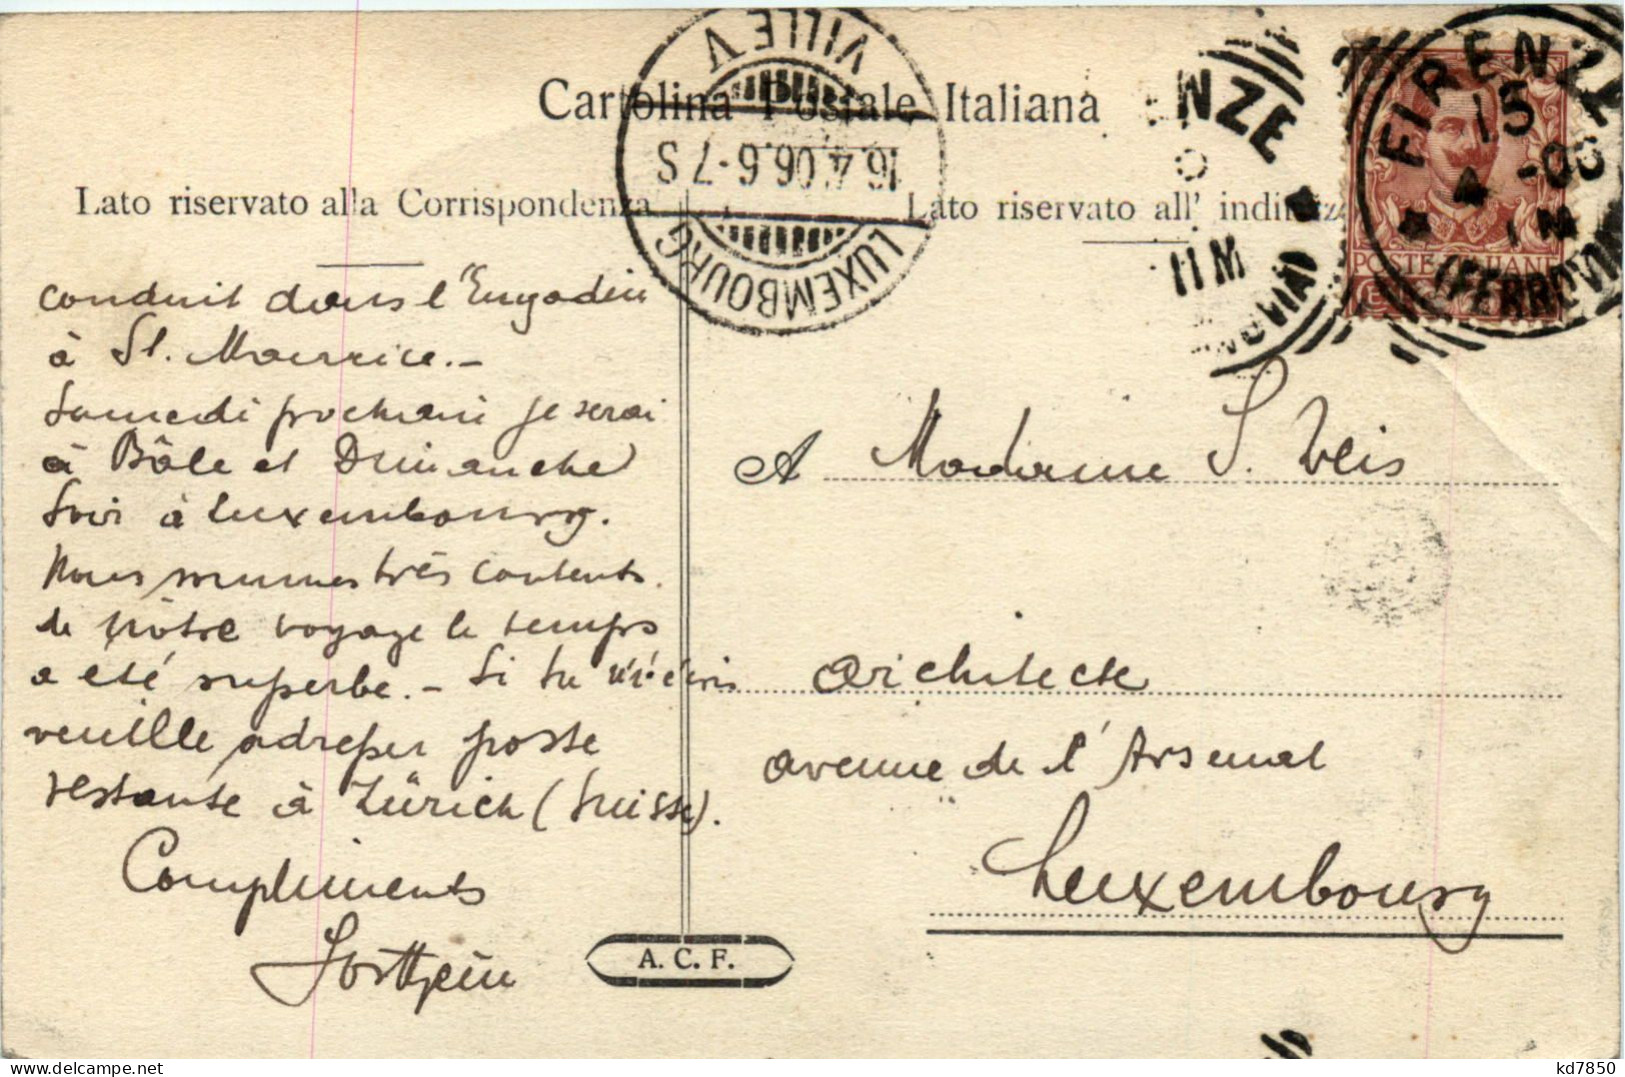 Cartolina Postale Italiana
Lato riservato alla Corrispondenza
Lato riservato all' indirizzo
LUXEMBOURG
VILLE V
16.4.06.6-7 S
FIRENZE
15
4 -06
(FERROVIA)
NZE
11M
POSTE ITALIANE
conduit dans l'Engadin
à St. Maurice.-
Samedi prochain je serai
à Bâle et Dimanche
Soir à Luxembourg.
Nous sommes très contents
de nôtre voyage le temps
a été superbe.- Si tu m'écris
veuille adresser poste
restante à Zürich (Suisse).
Compliments
A Madame S. Weis
architecte
avenue de l'Arsenal
Luxembourg
A. C. F.
kd7850